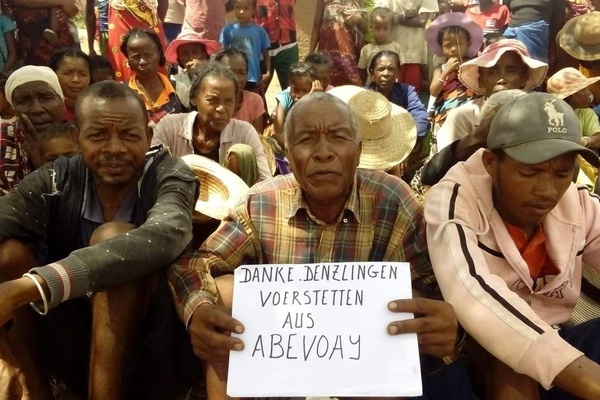 POLO
DANKE. DENZLINGEN
VOERSTETTEN
AUS
ABEVOAY